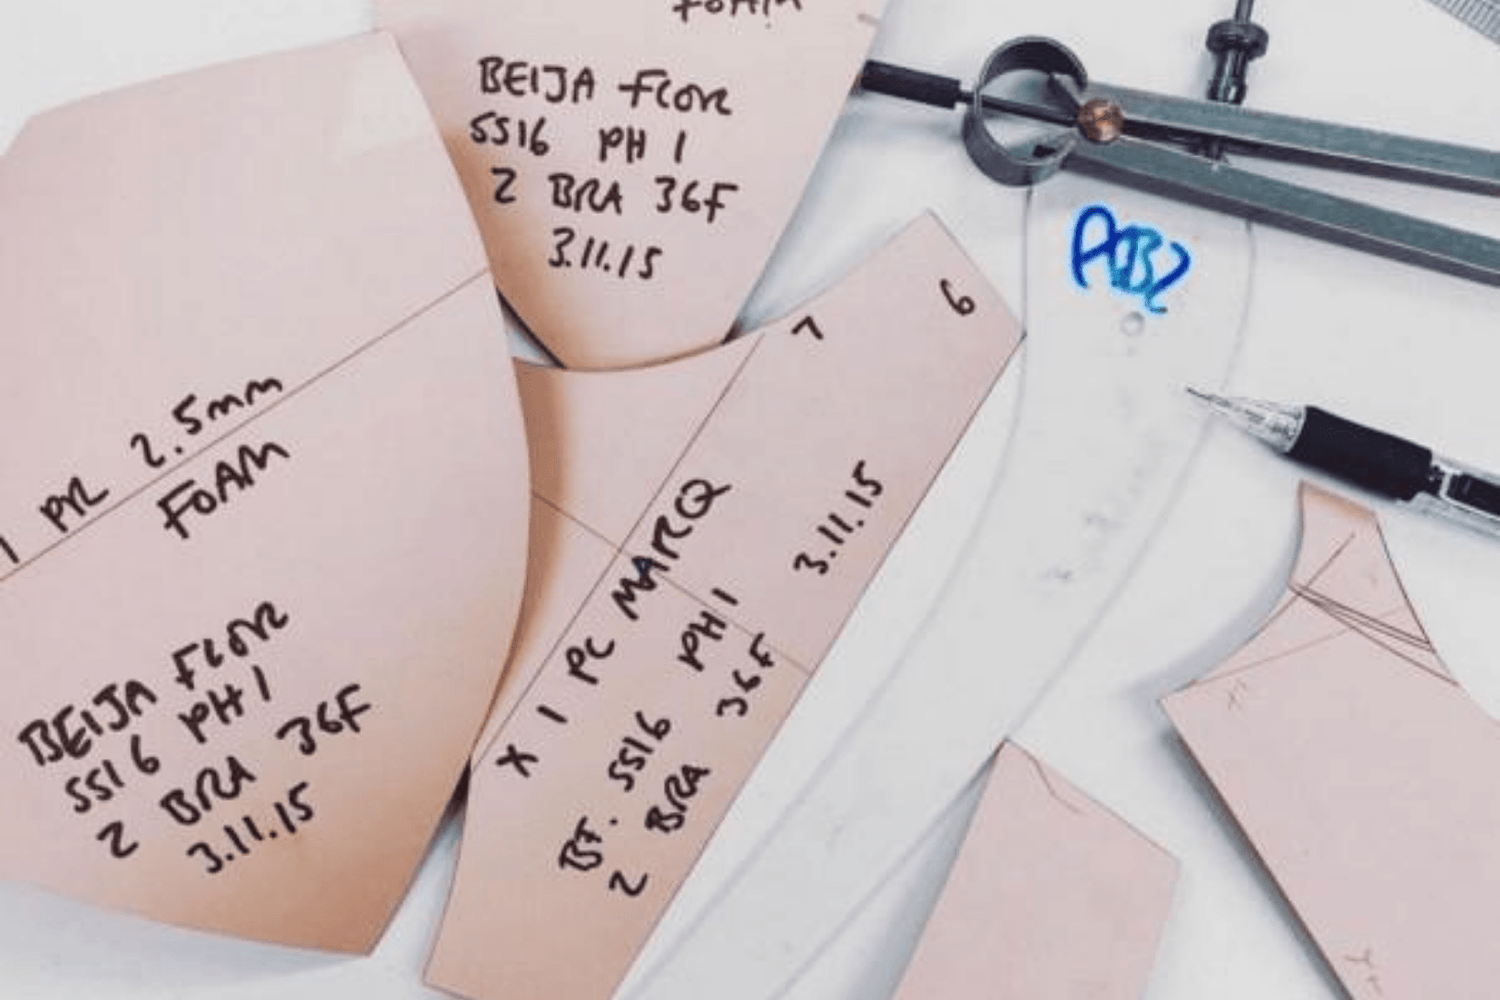 FOAM
BEIJA FLOR
SS16 PH 1
Z BRA 36F
3.11.15
1 PR 2.5mm
FOAM
BEIJA FLOR
SS16 PH 1
Z BRA 36F
3.11.15
7
6
X 1 PC MARQ
3.11.15
BF. SS16 PH 1
Z BRA 36F